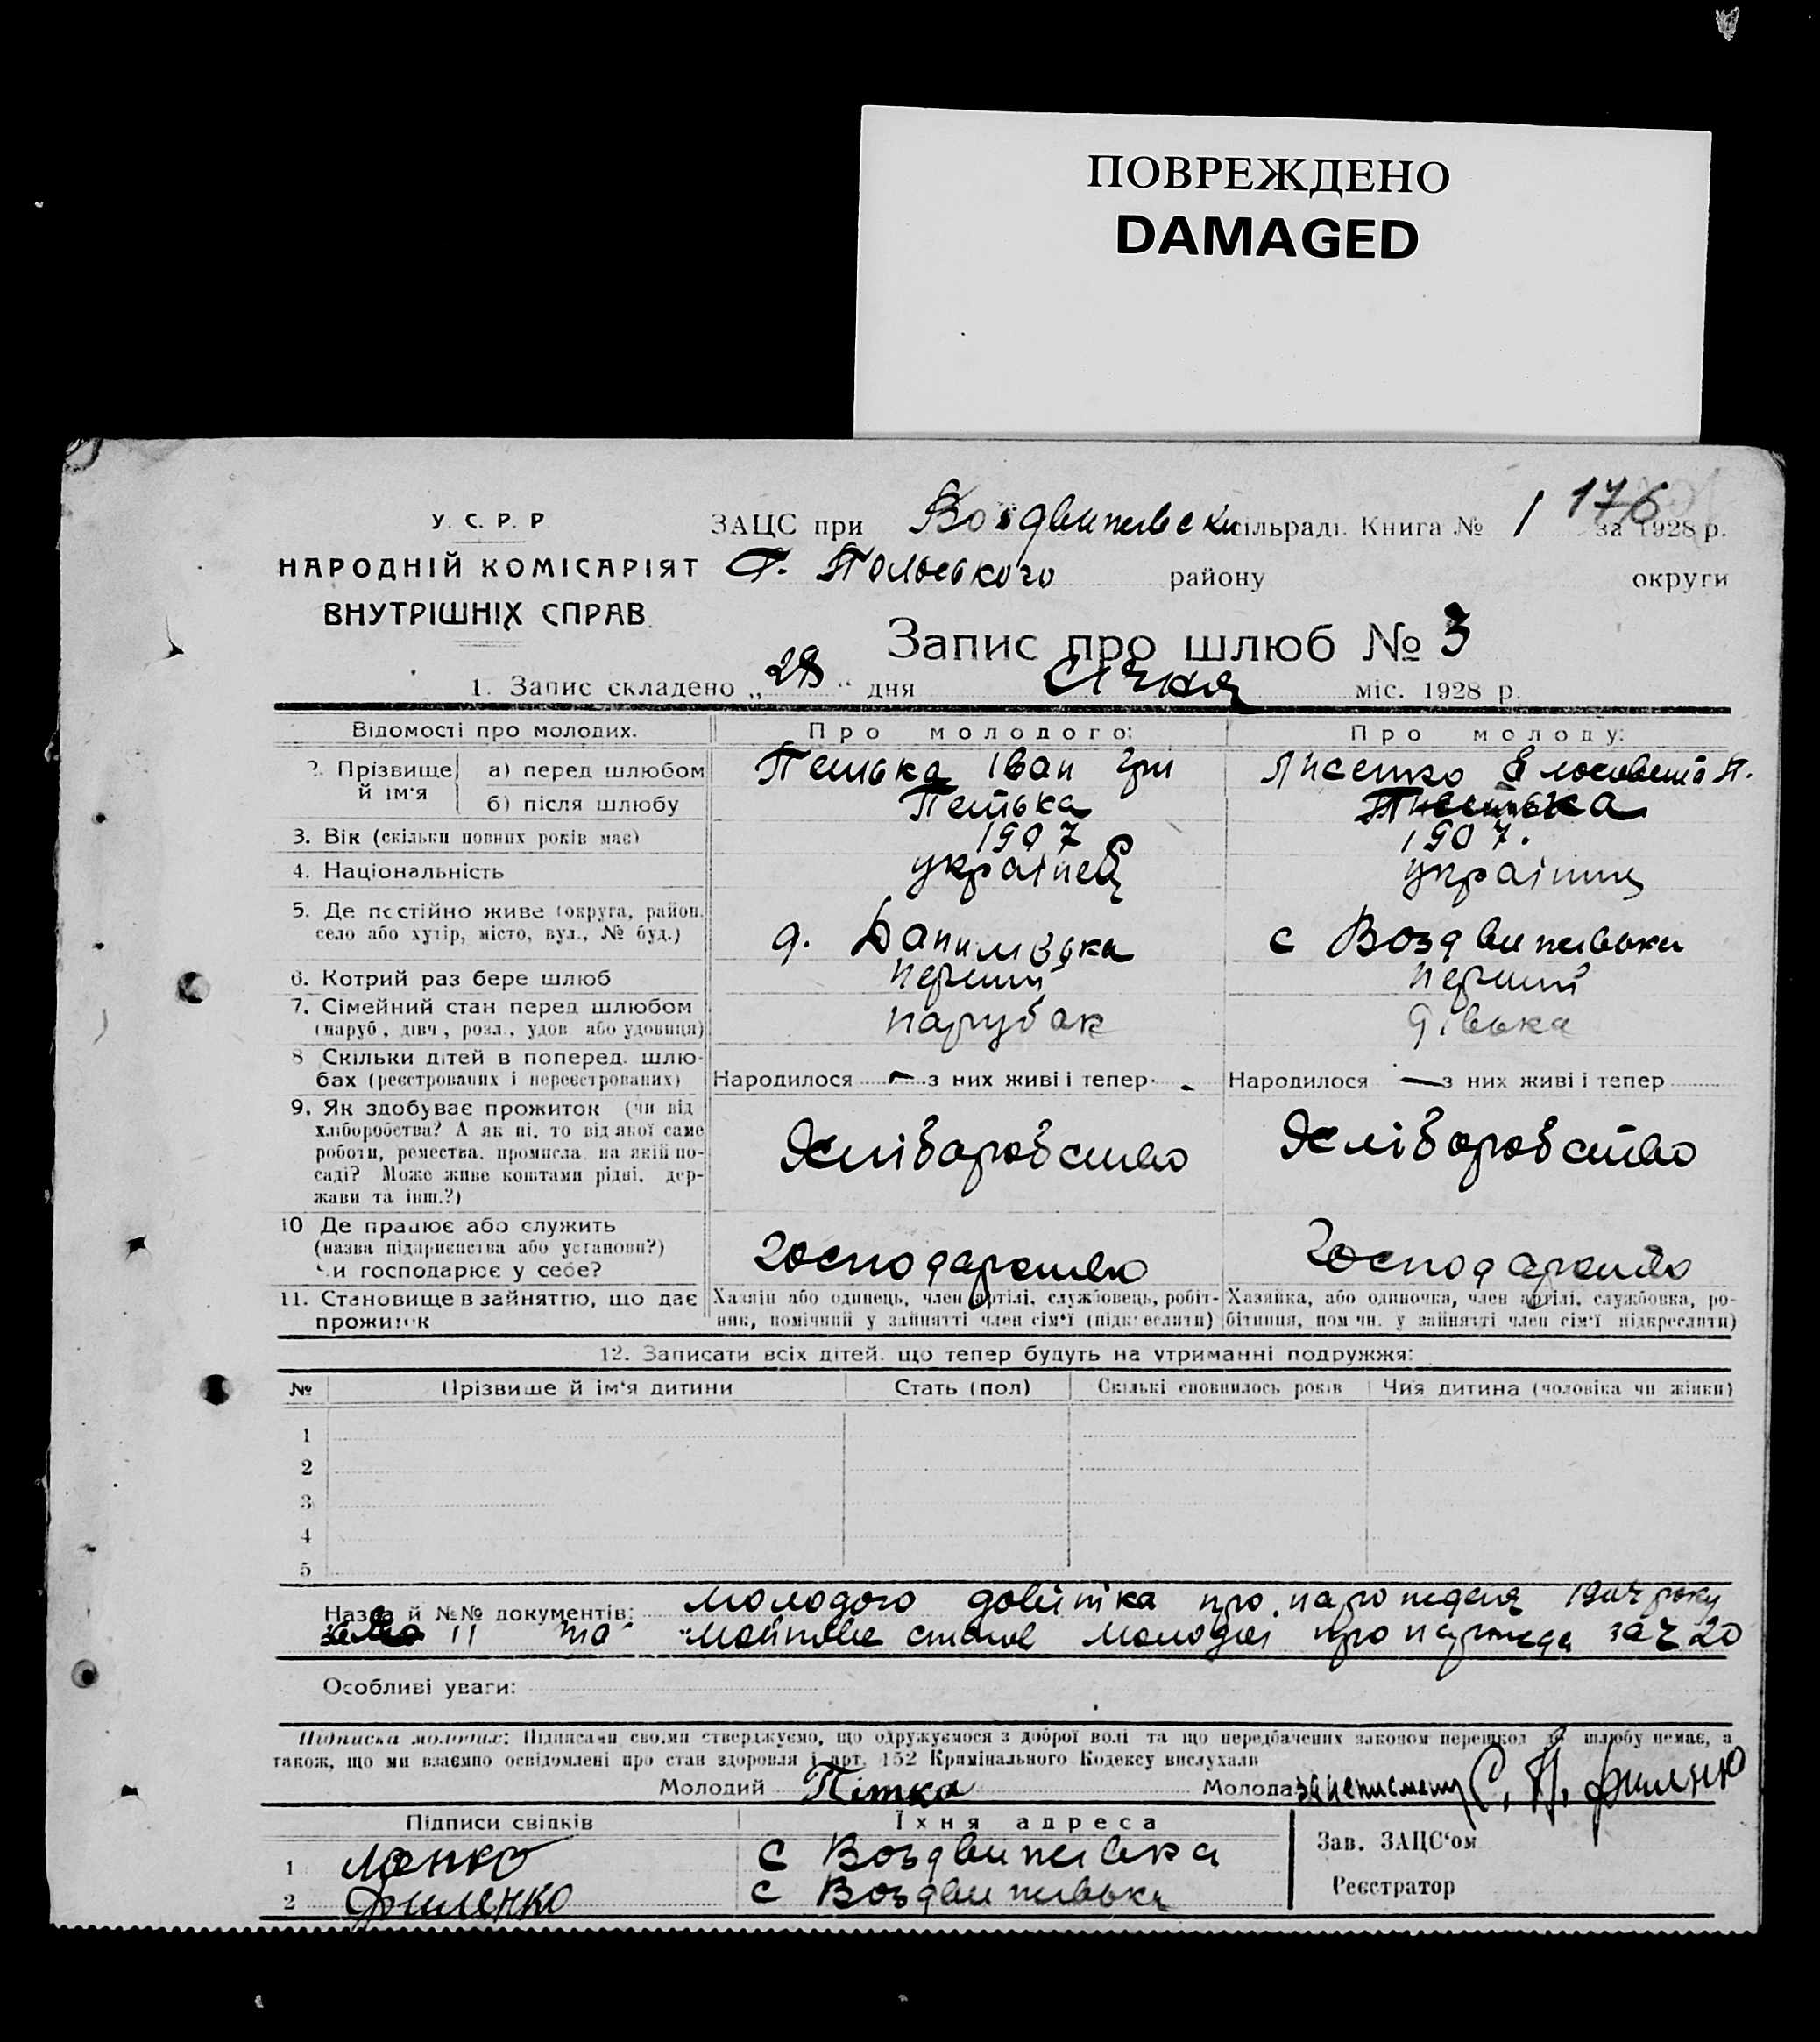 ПОВРЕЖДЕНО
DAMAGED
176
У. С. Р. Р.
НАРОДНІЙ КОМІСАРІЯТ
ВНУТРІШНІХ СПРАВ.
ЗАЦС при Воздвижевськи сільраді. Книга № 1 за 1928 р.
Г. Польського району округи
Запис про шлюб № 3
1. Запис складено „28“ дня Січня міс. 1928 р.
Відомості про молодих. Про молодого: Про молоду:
2. Прізвище й ім'я а) перед шлюбом Петька Іван Гри Лисенко П.
б) після шлюбу Петька
3. Вік (скільки повних років має) 1907 1907.
4. Національність українец українц
5. Де постійно живе (округа, район,
село або хутір, місто, вул., № буд.) Данилівка с Воздвижівки
6. Котрий раз бере шлюб перший перший
7. Сімейний стан перед шлюбом
(паруб., дівч., розл., удов. або удовиця) парубак дівька
8 Скільки дітей в поперед. шлю-
бах (реєстрованих і нереєстрованих) Народилося — з них живі і тепер - Народилося — з них живі і тепер
9. Як здобуває прожиток (чи від
хліборобства? А як ні, то від якої саме
роботи, ремества, промисла, на якій по-
саді? Може живе коштами рідні, дер-
жави та інш.?) Хліборобство Хліборобство
10 Де працює або служить
(назва підприємства або установи?)
Чи господарює у себе? Господарство Господарство
11. Становище в зайняттю, що дає
прожиток
Хазяїн або одинець, член артілі, службовець, робіт-
ник, помічний у зайнятті член сім'ї (підкреслити)
Хазяйка, або одиночка, член артілі, службовка, ро-
бітниця, помічн. у зайнятті член сім'ї підкреслити)
12. Записати всіх дітей, що тепер будуть на утриманні подружжя:
№ Прізвище й ім'я дитини Стать (пол) Скількі сповнилось років Чия дитина (чоловіка чи жінки)
1
2
3
4
5
Назва й №№ документів: молодого довітка про народженя року
11 та майнове молодої про за ч 20
Особливі уваги:
Підписка молодих: Підписами своїми стверджуємо, що одружуємося з доброї волі та що передбачених законом перешкод до шлюбу немає, а
також, що ми взаємно освідомлені про стан здоровля і арт. 152 Кримінального Кодексу вислухали
Молодий Петка Молода
Підписи свідків Їхня адреса
1 с Воздвижевка
2 с Воздвижівька
Зав. ЗАЦС'ом
Реєстратор